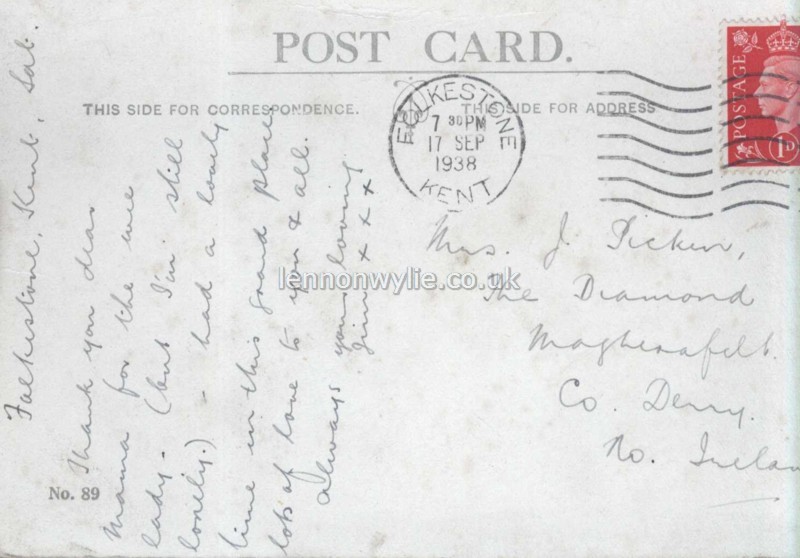 POST CARD.
THIS SIDE FOR CORRESPONDENCE.
THIS SIDE FOR ADDRESS
FOLKESTONE
7 30 PM
17 SEP
1938
KENT
POSTAGE
1D
Folkestone, Kent, Sat.
Thank you dear
Mama for the wee
lady - (but I'm still
lonely.) - had a lovely
time in this grand place,
lots of love to you & all.
Always your loving
Jim x x x
Mrs. J. Picken,
The Diamond
Magherafelt
Co. Derry.
No. Irelan
No. 89
lennonwylie.co.uk